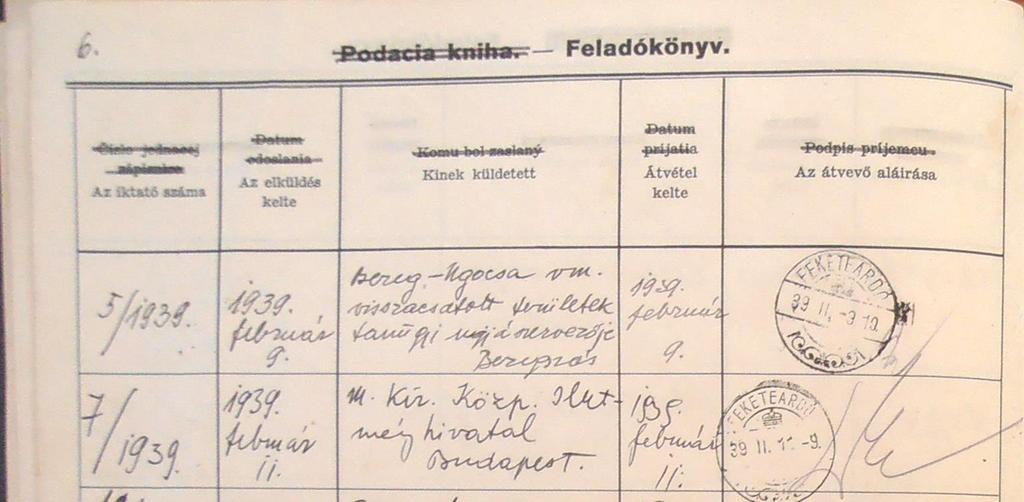 6.
Podacia kniha. — Feladókönyv.
Číslo jednacej
zápisnice
Az iktató száma
Datum
odoslania
Az elküldés
kelte
Komu bol zaslaný
Kinek küldetett
Datum
prijatia
Átvétel
kelte
Podpis príjemcu.
Az átvevő aláirása
5/1939.
1939.
február
9.
Bereg-Ugocsa vm.
visszacsatolt területek
tanügyi ujjászervezője
Beregszás
1939.
február
9.
FEKETEARDÓ
39 II. -9 19.
7/1939.
1939.
február
11.
M. Kir. Közp. Illet-
mény hivatal
Budapest.
1939.
február
11.
FEKETEARDÓ
39 II. 11 -9.